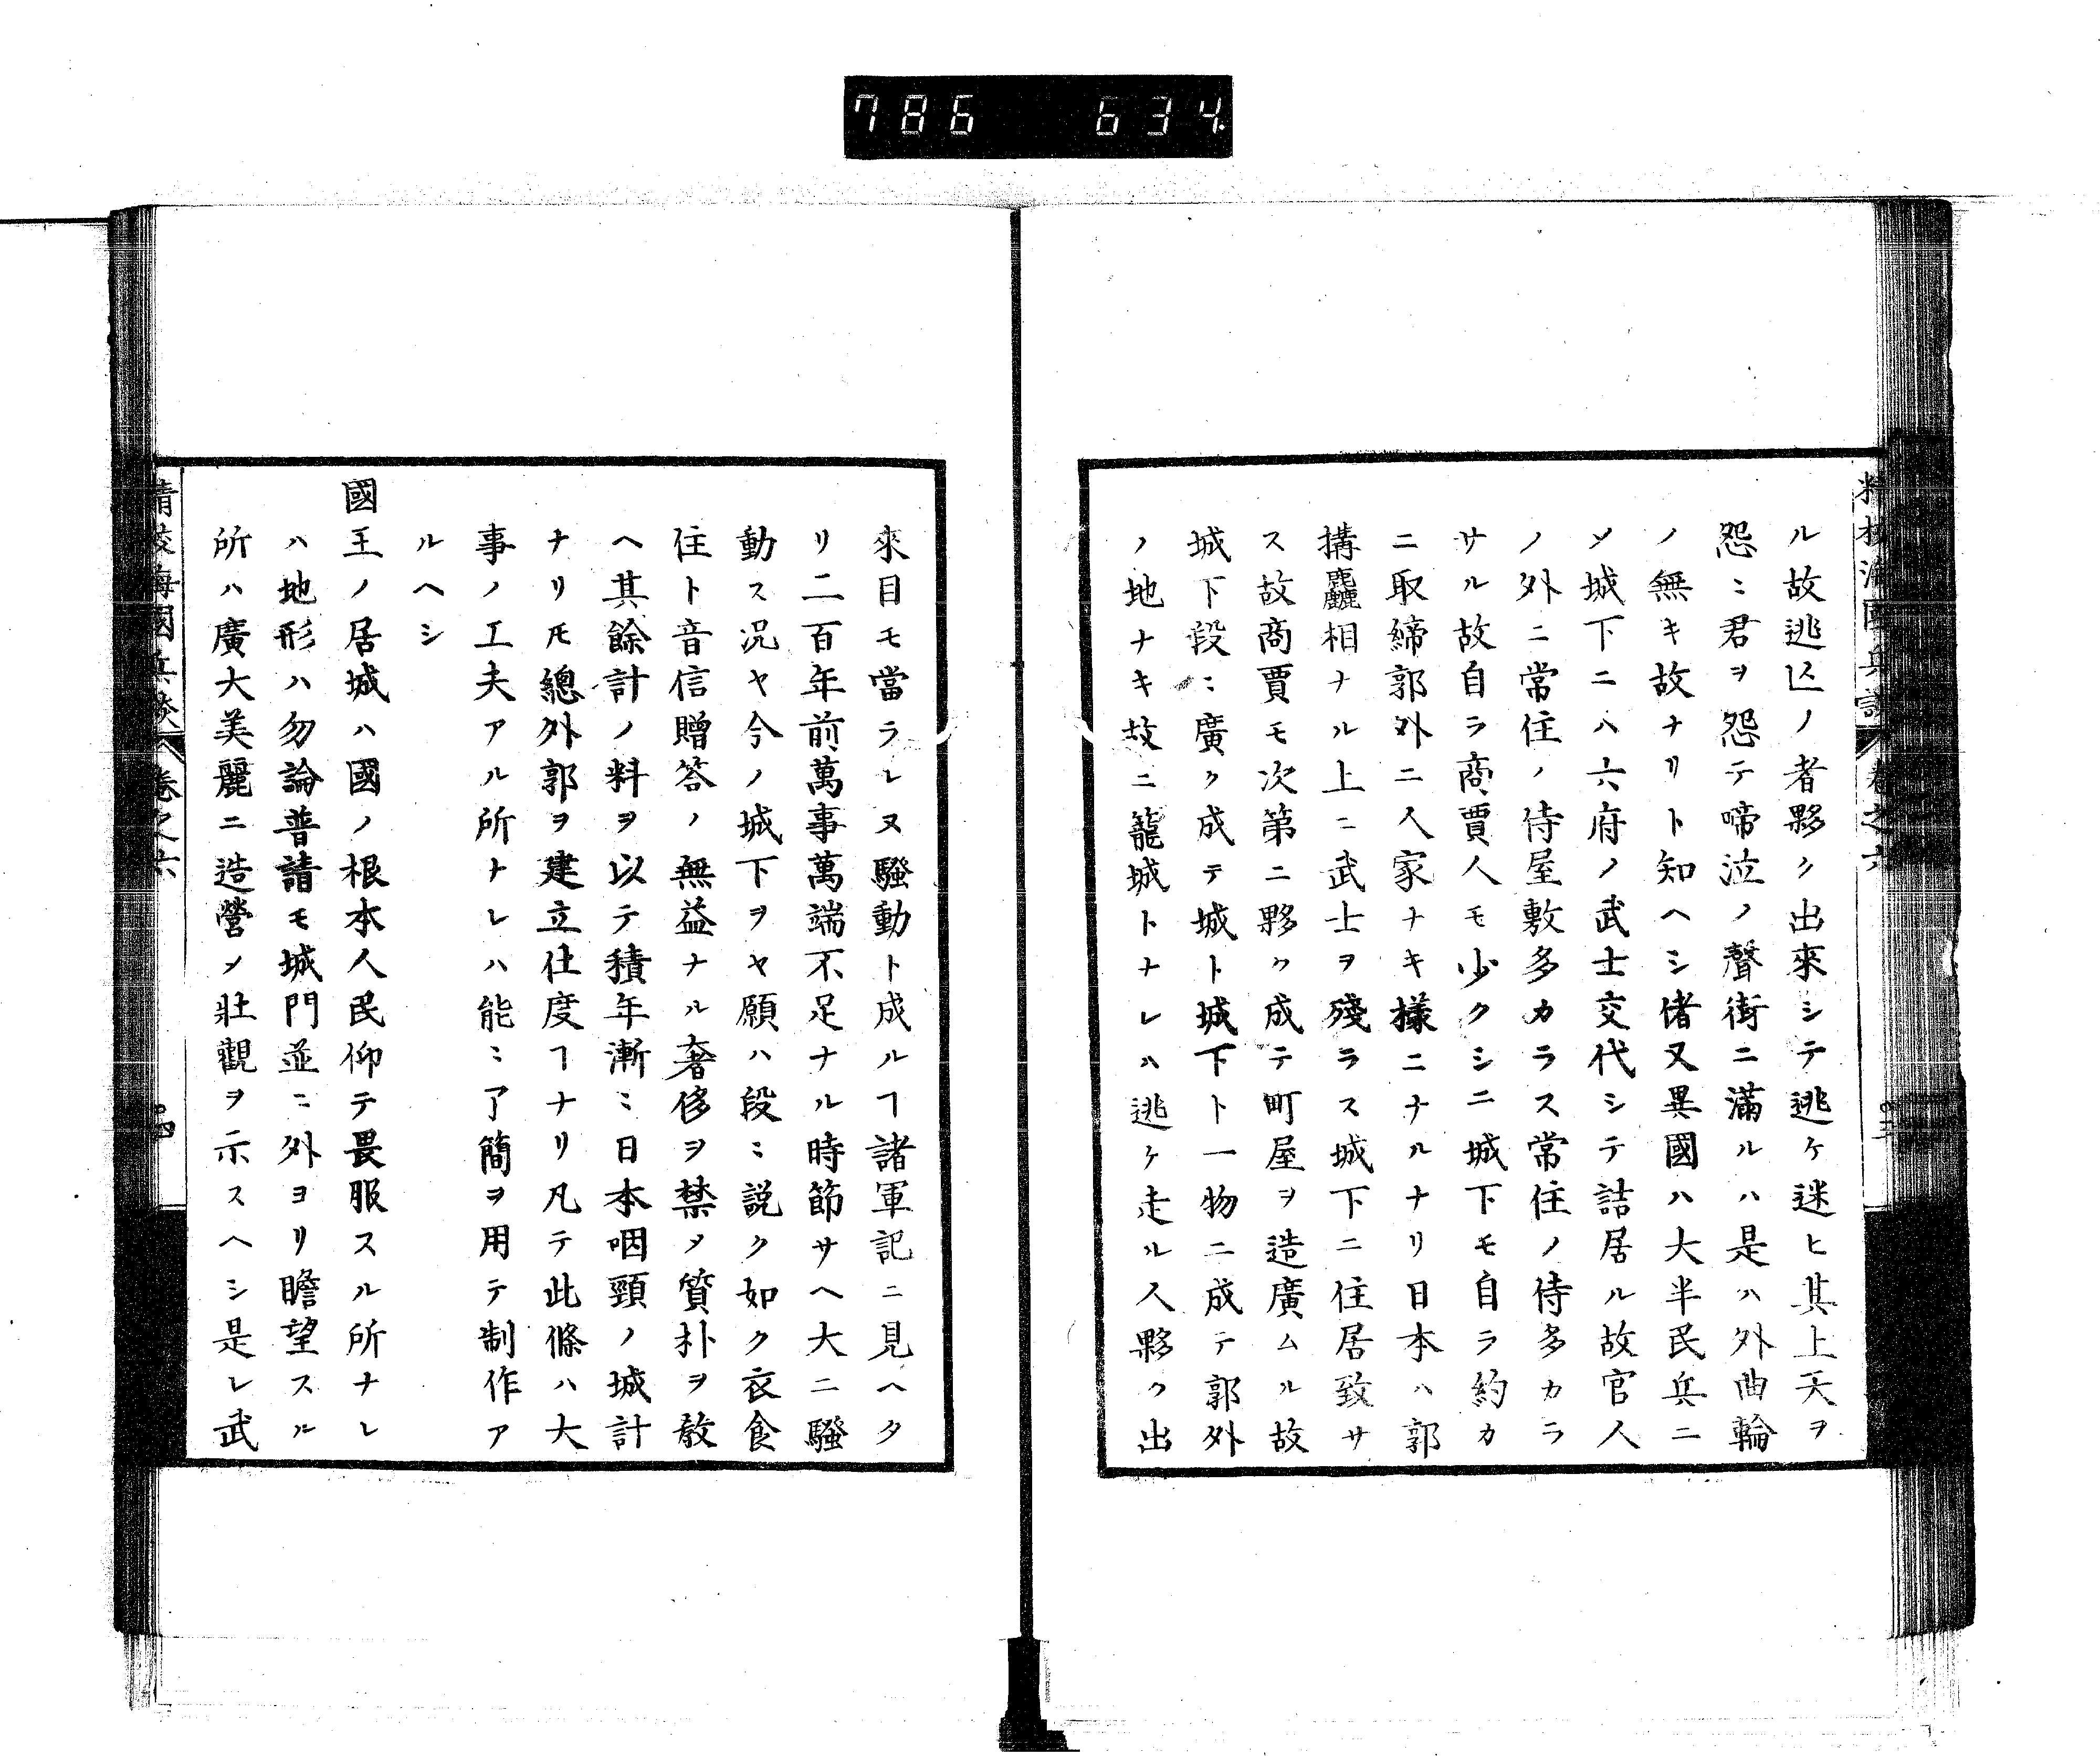 786 634
ル故逃亡ノ者夥ク出來シテ逃ケ迷ヒ其上天ヲ
怨ミ君ヲ怨テ啼泣ノ聲街ニ滿ルハ是ハ外曲輪
ノ無キ故ナリト知ヘシ偖又異國ハ大半民兵ニ
メ城下ニハ六府ノ武士交代シテ詰居ル故官人
ノ外ニ常住ノ侍屋敷多カラス常住ノ侍多カラ
サル故自ラ商賈人モ少クシニ城下モ自ラ約カ
ニ取締郭外ニ人家ナキ様ニナルナリ日本ハ郭
搆麤相ナル上ニ武士ヲ殘ラス城下ニ住居致サ
ス故商賈モ次第ニ夥ク成テ町屋ヲ造廣ムル故
城下段ミ廣ク成テ城ト城下ト一物ニ成テ郭外
ノ地ナキ故ニ籠城トナレハ逃ケ走ル人夥ク出
來目モ當ラレヌ騷動ト成ルヿ諸軍記ニ見ヘタ
リ二百年前萬事萬端不足ナル時節サヘ大ニ騷
動ス况ヤ今ノ城下ヲヤ願ハ段ミ説ク如ク衣食
住ト音信贈答ノ無益ナル奢侈ヲ禁メ質朴ヲ敎
ヘ其餘計ノ料ヲ以テ積年漸ミ日本咽頸ノ城計
ナリ𪜈總外郭ヲ建立仕度ヿナリ凡テ此條ハ大
事ノ工夫アル所ナレハ能ミ了簡ヲ用テ制作ア
ルヘシ
國王ノ居城ハ國ノ根本人民仰テ畏服スル所ナレ
ハ地形ハ勿論普請モ城門並ニ外ヨリ瞻望スル
所ハ廣大美麗ニ造營メ壯觀ヲ示スヘシ是レ武
精校海國兵談 卷之六